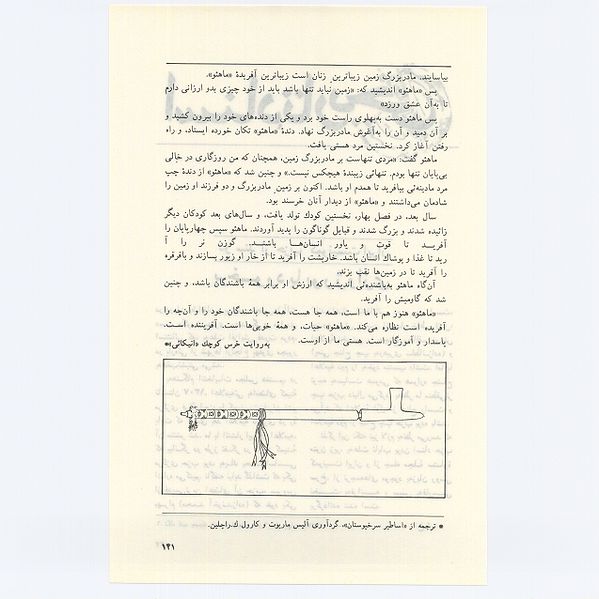 بیاسایند. مادربزرگ زمین زیباترین زنان است زیباترین آفریدهٔ «ماهئو».
پس «ماهئو» اندیشید که: «زمین نباید تنها باشد باید از خود چیزی بدو ارزانی دارم
تا به‌آن عشق ورزد»
پس ماهئو دست به‌پهلوی راست خود برد و یکی از دنده‌های خود را بیرون کشید و
بر آن دمید و آن را به‌آغوش مادربزرگ نهاد. دندهٔ «ماهئو» تکان خورده ایستاد، و راه
رفتن آغاز کرد. نخستین مرد هستی یافت.
ماهئو گفت: «مردی تنهاست بر مادربزرگ زمین، همچنان که من روزگاری در خالی
بی‌پایان تنها بودم. تنهائی زیبندهٔ هیچکس نیست.» و چنین شد که «ماهئو» از دندهٔ چپ
مرد مادینه‌ئی بیافرید تا همدم او باشد. اکنون بر زمین مادربزرگ و دو فرزند او زمین را
شادمان می‌داشتند و «ماهئو» از دیدار آنان خرسند بود.
سال بعد، در فصل بهار، نخستین کودك تولد یافت، و سال‌های بعد کودکان دیگر
زائیده شدند و بزرگ شدند و قبایل گوناگون را پدید آوردند. ماهئو سپس چهارپایان را
آفرید تا قوت و یاور انسان‌ها باشند. گوزن نر را آ
رید تا غذا و پوشاك انسان باشد. خارپشت را آفرید تا از خار او زیور بسازند و بافرقره
را آفرید تا در زمین‌ها نقب بزند.
آن‌گاه ماهئو به‌باشنده‌ئی اندیشید که ارزش او برابر همهٔ باشندگان باشد، و چنین
شد که گاومیش را آفرید.
«ماهئو» هنوز هم با ما است، همه جا هست، همه جا باشندگان خود را و آن‌چه را
آفریده است نظاره می‌کند. «ماهئو» حیات، و همهٔ خوبی‌ها است. آفریننده است.
پاسدار و آموزگار است. هستی ما از اوست.
به‌روایت خرس کوچك «انیکائی»*
* ترجمه از «اساطیر سرخپوستان»، گردآوری آلیس ماریوت و کارول ك.راچلین.
۱۴۱